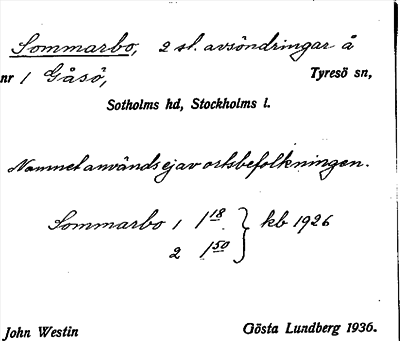 Sommarbo, 2 st. avsöndringar å
nr 1 Gåsö, Tyresö sn,
Sotholms hd, Stockholms l.
Namnet användsejav ortsbefolkningen.
Sommarbo 1 1 18 } kb 1926
2 1 50
John Westin Gösta Lundberg 1936.